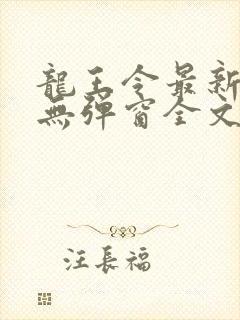 龍王令最新
無彈窗全文
汪長福